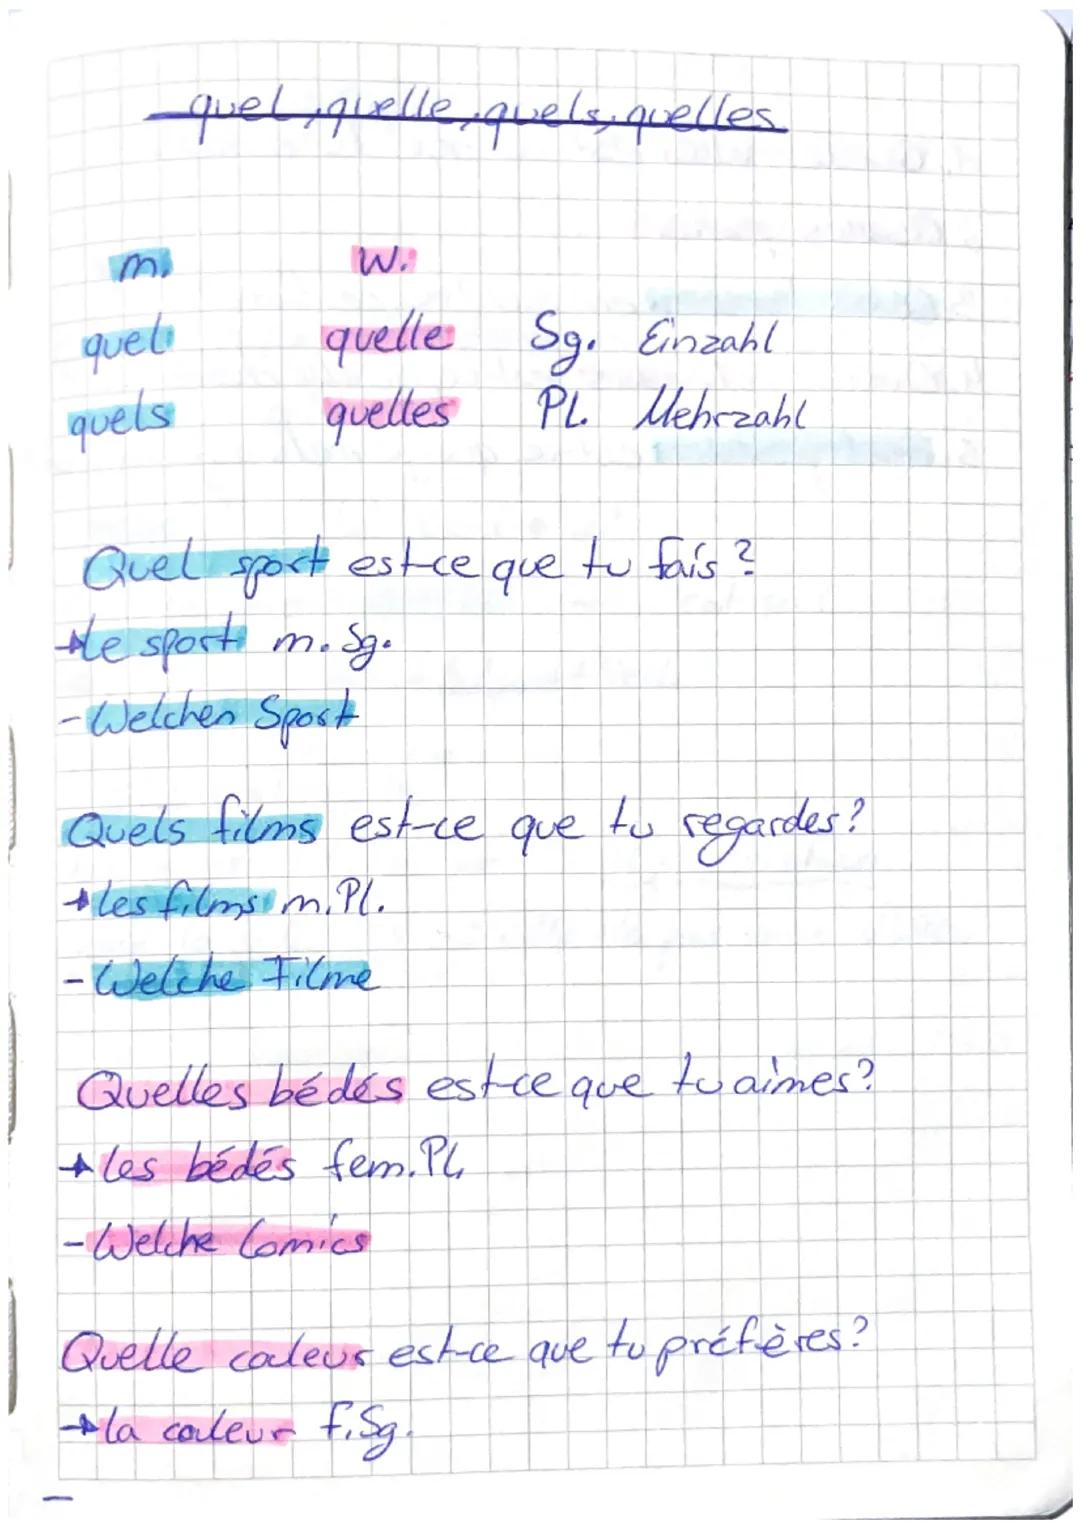 quel, quelle, quels, quelles
m. W.
quel quelle Sg. Einzahl
quels quelles Pl. Mehrzahl
Quel sport est-ce que tu fais?
→ le sport m. Sg.
- Welchen Sport
Quels films est-ce que tu regardes?
→ les films m. Pl.
- Welche Filme
Quelles bédés est-ce que tu aimes?
→ les bédés fem. Pl.
- Welche Comics
Quelle couleur est-ce que tu préfères?
→ la couleur f. Sg.